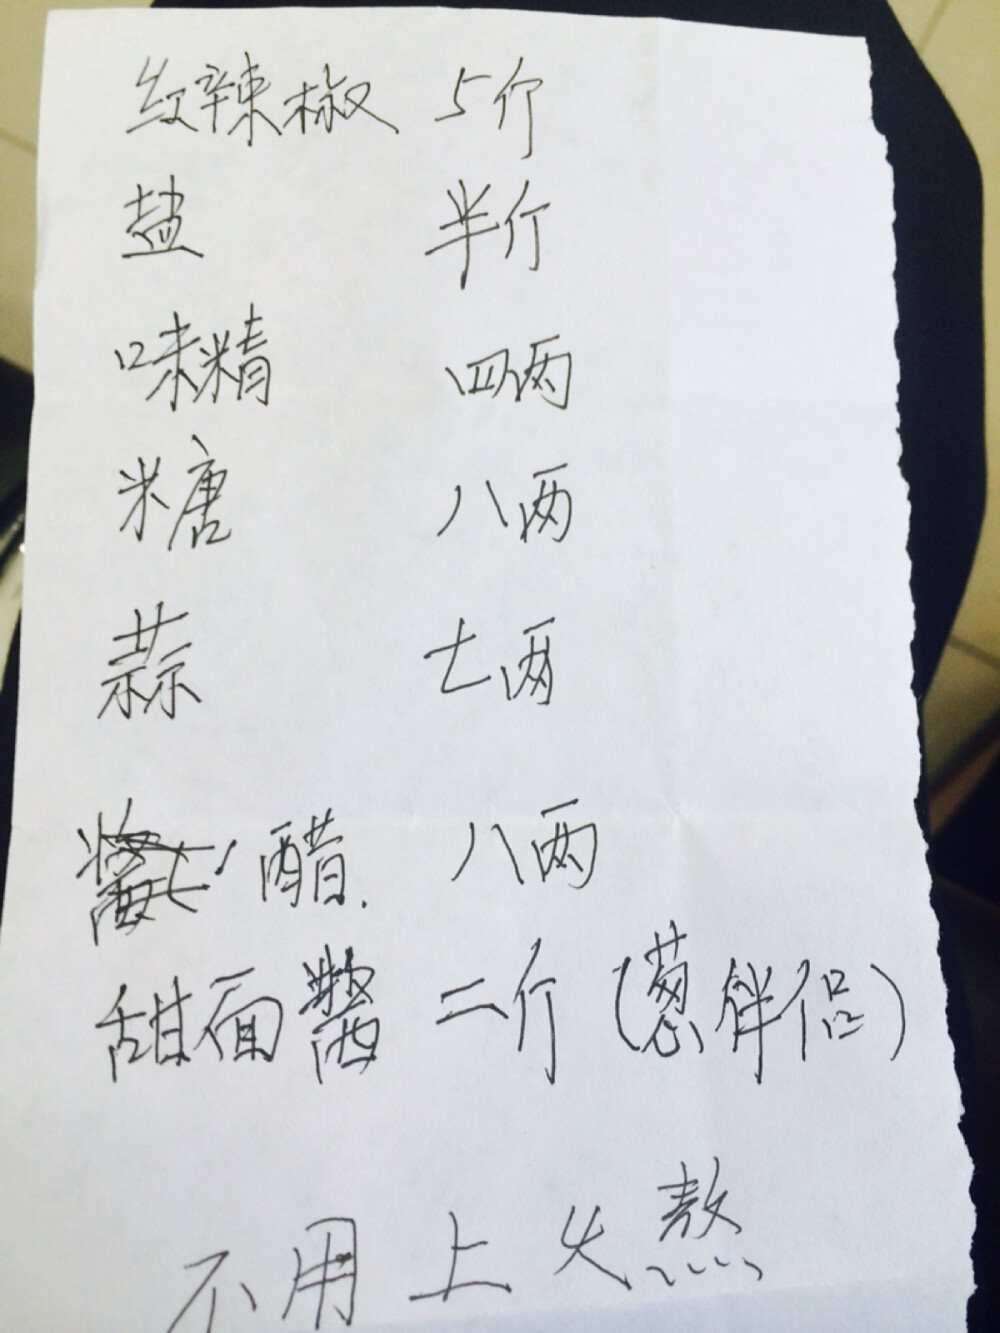 红辣椒 5斤
盐 半斤
味精 四两
糖 八两
蒜 七两
醋. 八两
甜面酱 二斤(葱伴侣)
不用上火熬